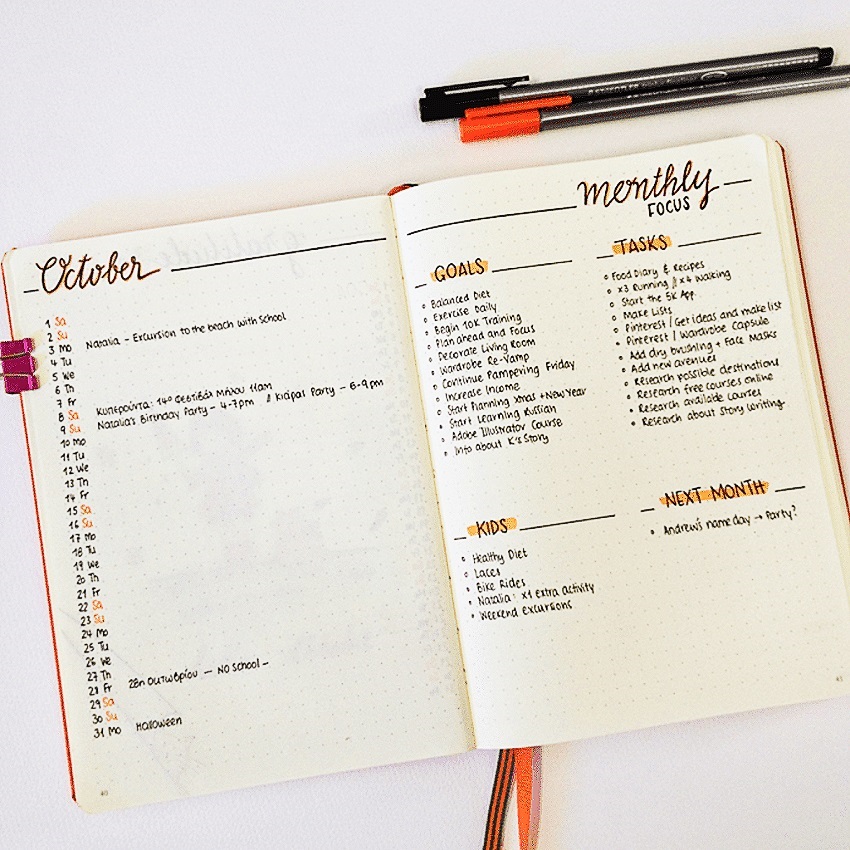 October
1 Sa
2 Su
3 Mo Natalia - Excursion to the beach with school
4 Tu
5 We
6 Th
7 Fr
8 Sa Κυπερούντα: 14ο Φεστιβάλ Μήλου 11am
9 Su Natalia's Birthday Party - 4-7pm // Κιάρας Party - 6-9pm
10 Mo
11 Tu
12 We
13 Th
14 Fr
15 Sa
16 Su
17 Mo
18 Tu
19 We
20 Th
21 Fr
22 Sa
23 Su
24 Mo
25 Tu
26 We
27 Th
28 Fr 28η Οκτωβρίου - NO School -
29 Sa
30 Su
31 Mo Halloween
40
monthly
FOCUS
GOALS
Balanced Diet
Exercise Daily
Begin 10K Training
Plan ahead and Focus
Decorate Living Room
Wardrobe Re-Vamp
Continue Pampering Friday
Increase Income
Start Planning Xmas + New Year
Start Learning Russian
Adobe Illustrator Course
Info about K's Story
TASKS
Food Diary & Recipes
x3 Running // x4 Walking
Start the 5K App.
Make Lists
Pinterest / Get ideas and make list
Pinterest / Wardrobe Capsule
Add dry brushing + Face Masks
Add new avenues
Research possible destinations
Research free courses online
Research available courses
Research about Story Writing.
KIDS
Healthy Diet
Laces
Bike Rides
Natalia: x1 extra activity
Weekend excursions
NEXT MONTH
Andrew's name day → Party?
41